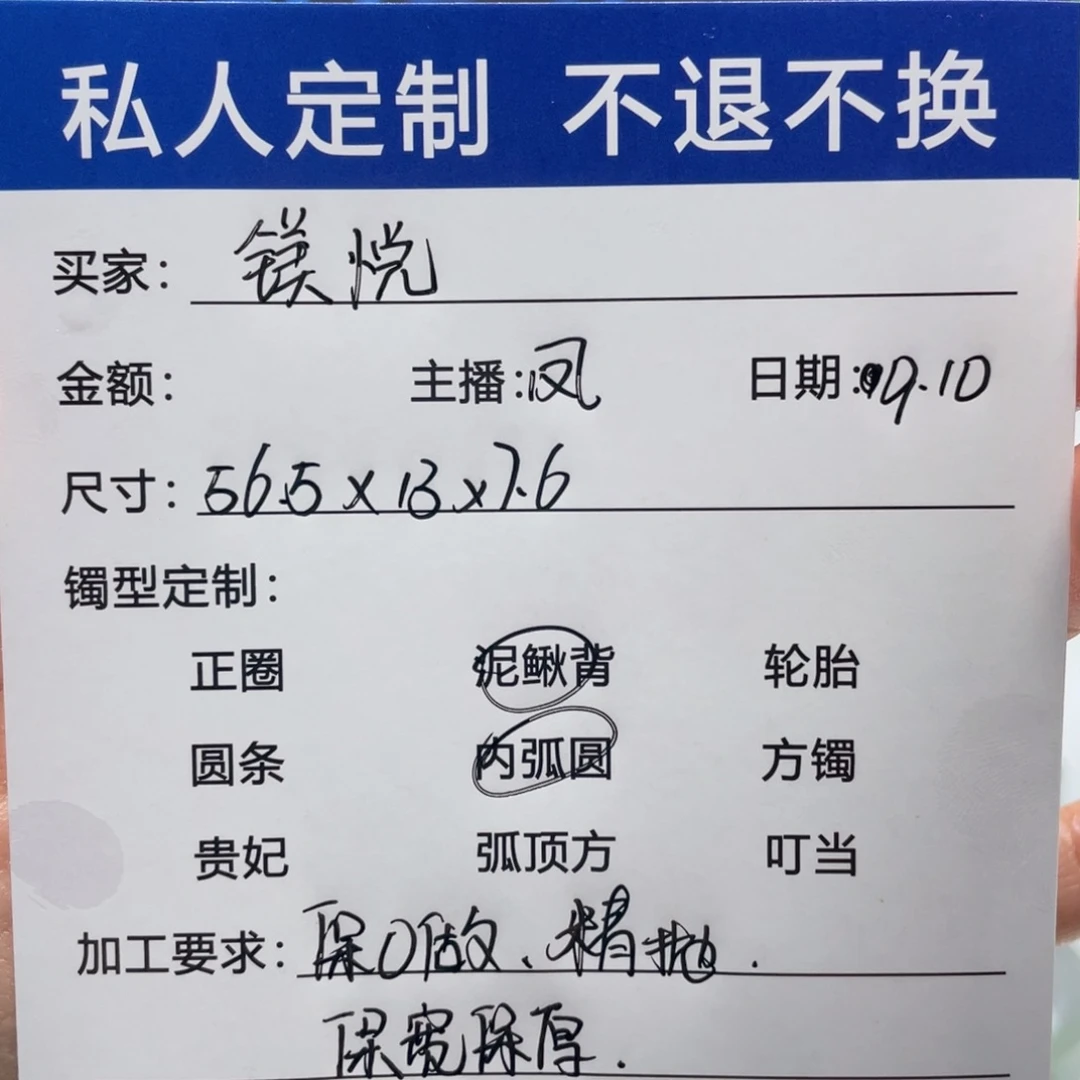 私人定制 不退不换
买家：镁悦
金额： 主播：凤 日期：09.10
尺寸：56.5×13×7.6
镯型定制：
正圈 泥鳅背 轮胎
圆条 内弧圆 方镯
贵妃 弧顶方 叮当
加工要求：保O做、精抛.
保宽保厚.